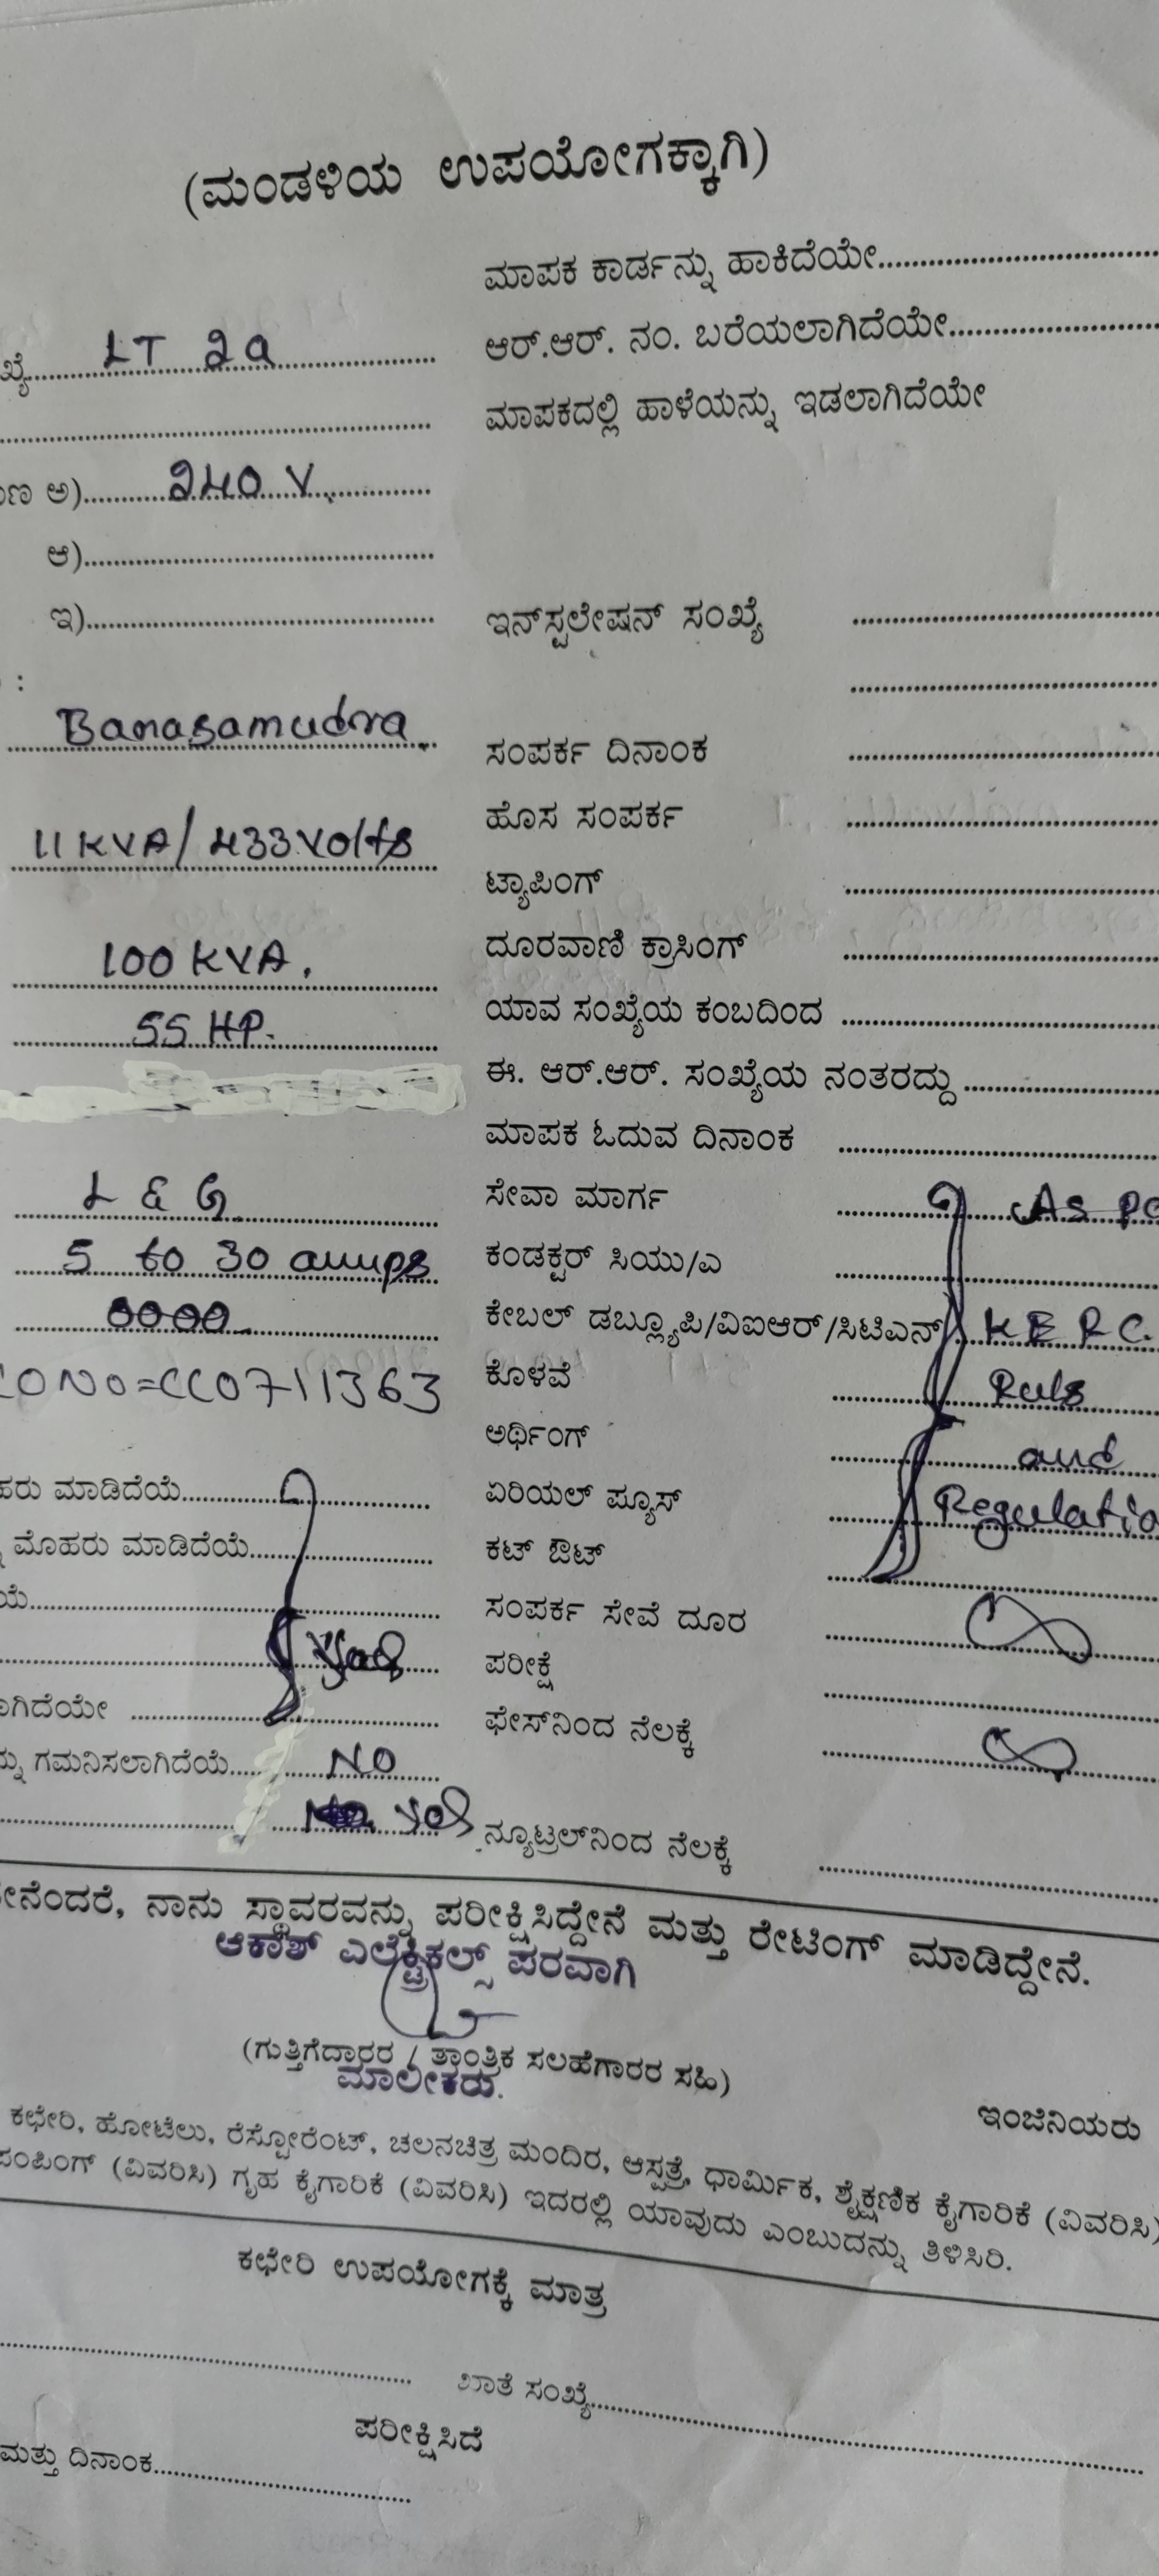 (ಮಂಡಳಿಯ ಉಪಯೋಗಕ್ಕಾಗಿ)
ಮಾಪಕ ಕಾರ್ಡನ್ನು ಹಾಕಿದೆಯೇ
LT 2a ಆರ್.ಆರ್. ನಂ. ಬರೆಯಲಾಗಿದೆಯೇ
ಮಾಪಕದಲ್ಲಿ ಹಾಳೆಯನ್ನು ಇಡಲಾಗಿದೆಯೇ
ಅ) 240 V.
ಆ)
ಇ) ಇನ್‌ಸ್ಟಲೇಷನ್ ಸಂಖ್ಯೆ
:
Banasamudra. ಸಂಪರ್ಕ ದಿನಾಂಕ
11 KVA/433 Volts ಹೊಸ ಸಂಪರ್ಕ
ಟ್ಯಾಪಿಂಗ್
100 KVA. ದೂರವಾಣಿ ಕ್ರಾಸಿಂಗ್
55 HP. ಯಾವ ಸಂಖ್ಯೆಯ ಕಂಬದಿಂದ
ಈ. ಆರ್.ಆರ್. ಸಂಖ್ಯೆಯ ನಂತರದ್ದು
ಮಾಪಕ ಓದುವ ದಿನಾಂಕ
L & G. ಸೇವಾ ಮಾರ್ಗ As
5 to 30 amps ಕಂಡಕ್ಟರ್ ಸಿಯು/ಎ
0000 ಕೇಬಲ್ ಡಬ್ಲ್ಯೂಪಿ/ವಿಐಆರ್/ಸಿಟಿಎನ್ KERC.
NO=CC0711363 ಕೊಳವೆ Ruls
ಅರ್ಥಿಂಗ್ and
ಮಾಡಿದೆಯೆ ಏರಿಯಲ್ ಪ್ಯೂಸ್ Regulatio
ಮೊಹರು ಮಾಡಿದೆಯೆ ಕಟ್ ಔಟ್
ಸಂಪರ್ಕ ಸೇವೆ ದೂರ
Yes ಪರೀಕ್ಷೆ
ಫೇಸ್‌ನಿಂದ ನೆಲಕ್ಕೆ
ಗಮನಿಸಲಾಗಿದೆಯೆ NO
Yes ನ್ಯೂಟ್ರಲ್‌ನಿಂದ ನೆಲಕ್ಕೆ
ನಾನು ಸ್ಥಾವರವನ್ನು ಪರೀಕ್ಷಿಸಿದ್ದೇನೆ ಮತ್ತು ರೇಟಿಂಗ್ ಮಾಡಿದ್ದೇನೆ.
ಆಕಾಶ್ ಎಲೆಕ್ಟ್ರಿಕಲ್ಸ್ ಪರವಾಗಿ
(ಗುತ್ತಿಗೆದಾರರ / ತಾಂತ್ರಿಕ ಸಲಹೆಗಾರರ ಸಹಿ)
ಮಾಲೀಕರು.
ಇಂಜಿನಿಯರು
ಕಛೇರಿ, ಹೋಟೆಲು, ರೆಸ್ಟೋರೆಂಟ್, ಚಲನಚಿತ್ರ ಮಂದಿರ, ಆಸ್ಪತ್ರೆ, ಧಾರ್ಮಿಕ, ಶೈಕ್ಷಣಿಕ ಕೈಗಾರಿಕೆ (ವಿವರಿಸಿ)
ಪಂಪಿಂಗ್ (ವಿವರಿಸಿ) ಗೃಹ ಕೈಗಾರಿಕೆ (ವಿವರಿಸಿ) ಇದರಲ್ಲಿ ಯಾವುದು ಎಂಬುದನ್ನು ತಿಳಿಸಿರಿ.
ಕಛೇರಿ ಉಪಯೋಗಕ್ಕೆ ಮಾತ್ರ
ಖಾತೆ ಸಂಖ್ಯೆ
ಪರೀಕ್ಷಿಸಿದೆ
ಮತ್ತು ದಿನಾಂಕ